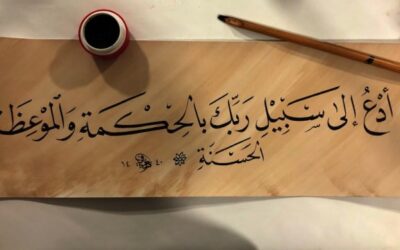 أُدْعُ إِلىٰ سَبِيْلِ رَبِّكَ بِالْحِكْمَةِ وَالْمَوْعِظَ
الْحَسَنَةِ